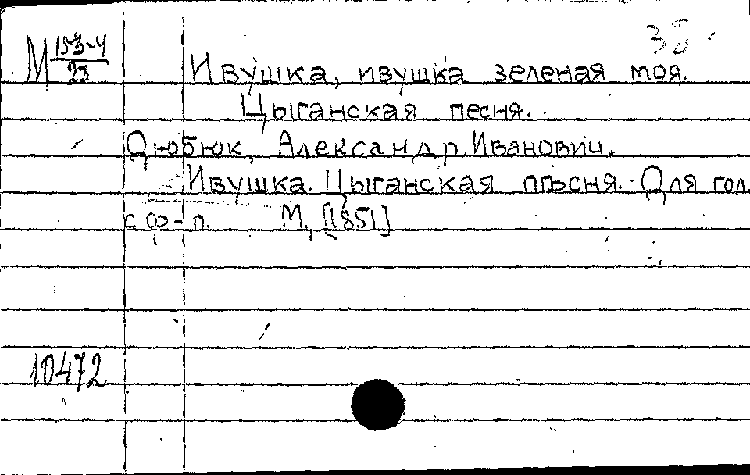 38
М 153-4/23
Ивушка, ивушка зеленая моя.
Цыганская песня.
Дюбюк, Александр Иванович.
Ивушка. Цыганская пѣсня. Для гол.
с ф-п. М, [1851]
10472